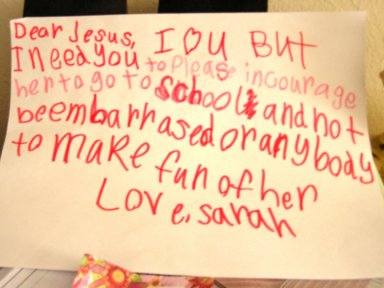 Dear Jesus, I ♡ U BUT
I need you to please incourage
her to go to school and not
be embarrased or anybody
to make fun of her
Love, sarah